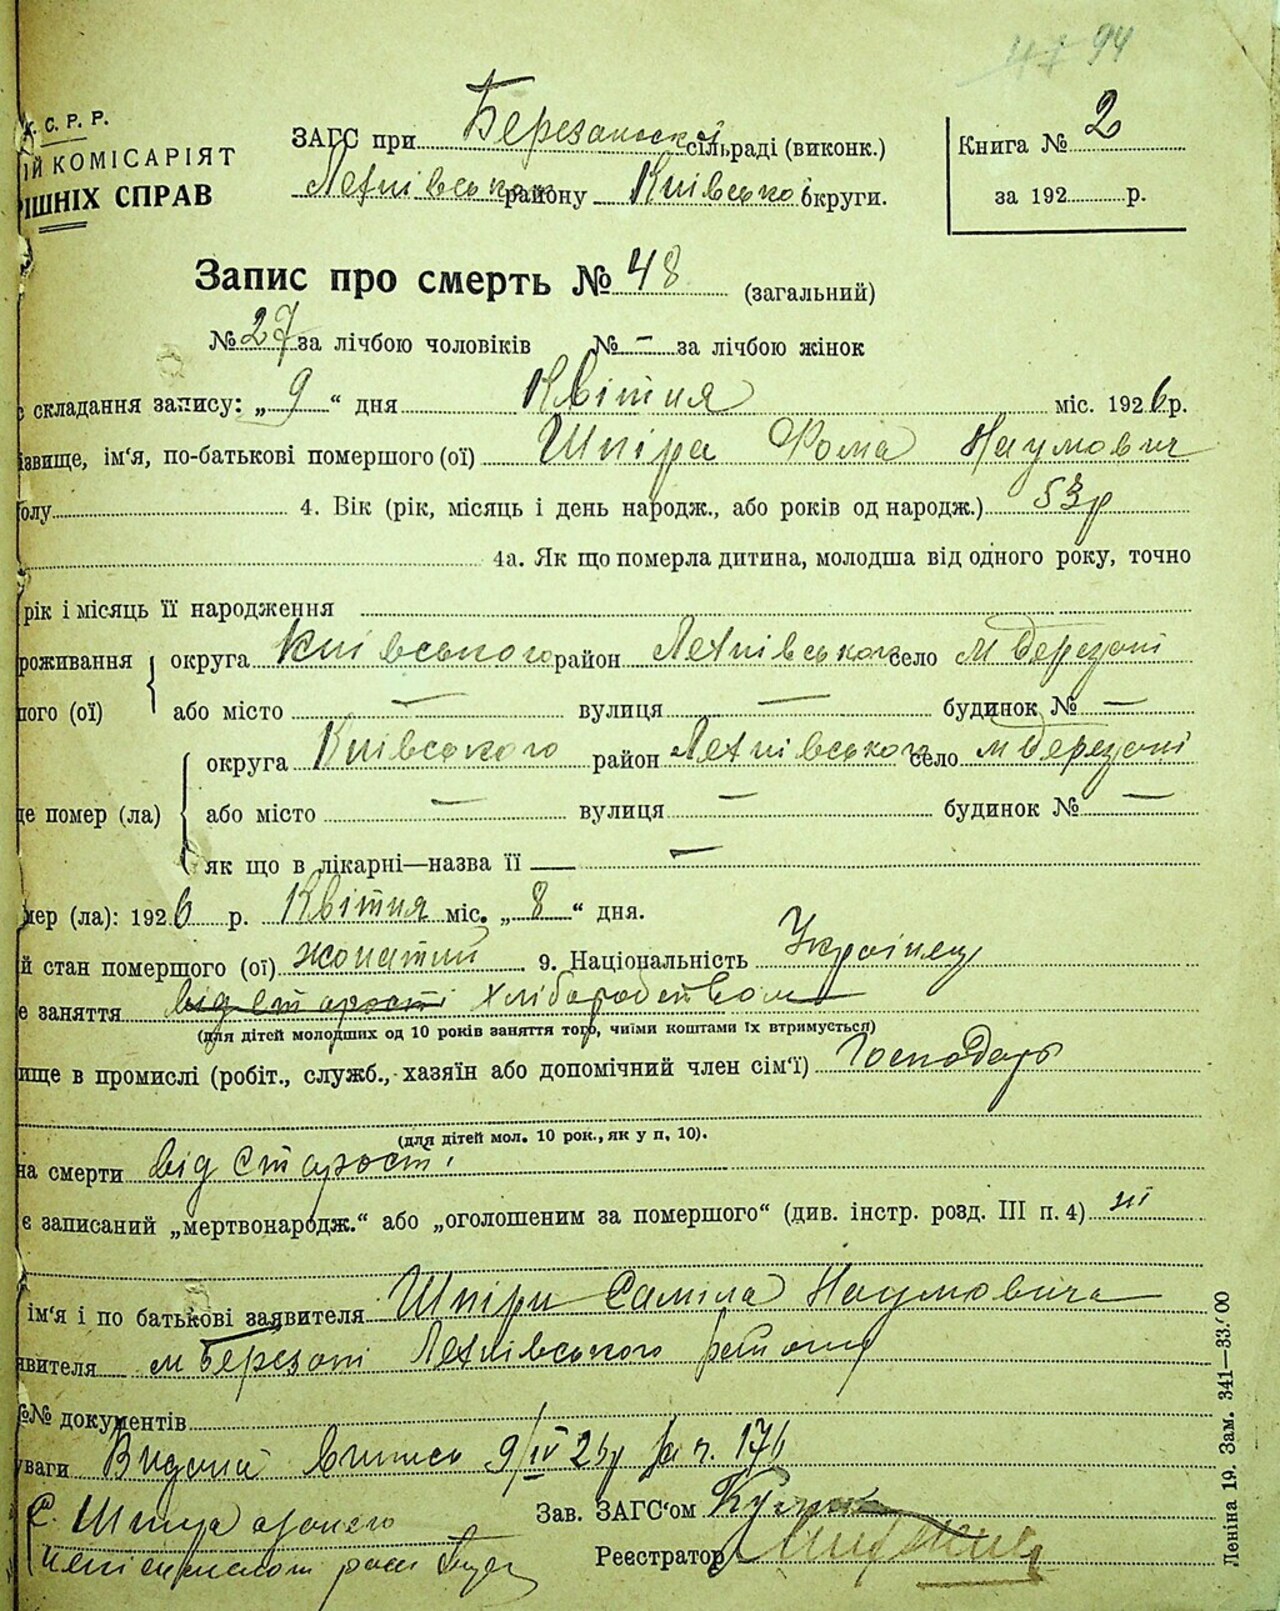 94
К. С. Р. Р.
ІЙ КОМІСАРІЯТ
ІШНІХ СПРАВ
ЗАГС при Березанській сільраді (виконк.)
району Київської округи.
Книга № 2
за 192 р.
Запис про смерть № 48 (загальний)
№ 27 за лічбою чоловіків № — за лічбою жінок
складання запису: „ 9 “ дня Квітня міс. 1926 р.
ізвище, ім'я, по-батькові помершого (ої) Шпіра Фома Наумович
олу 4. Вік (рік, місяць і день народж., або років од народж.) 53 р
4а. Як що померла дитина, молодша від одного року, точно
рік і місяць її народження
роживання округа Київського район село м Березані
ного (ої) або місто — вулиця — будинок № —
округа Київського район село м Березані
де помер (ла) або місто — вулиця — будинок № —
як що в лікарні—назва її —
мер (ла): 1926 р. Квітня міс. „ 8 “ дня.
й стан помершого (ої) жонатий 9. Національність Українец
е заняття від старості хліборобством
(для дітей молодших од 10 років заняття того, чиїми коштами їх втримується)
ище в промислі (робіт., служб., хазяїн або допомічний член сім'ї) Господарь
(для дітей мол. 10 рок., як у п, 10).
на смерти від старості
є записаний „мертвонародж.“ або „оголошеним за помершого“ (див. інстр. розд. III п. 4) ні
ім'я і по батькові заявителя Шпіри Саміла Наумовича
явителя м Березані району
№№ документів
уваги Виданий виписъ 9/IV 26р за ч. 176
Зав. ЗАГС'ом
С. Шпира
Реєстратор
Леніна 19. Зам. 341—33.